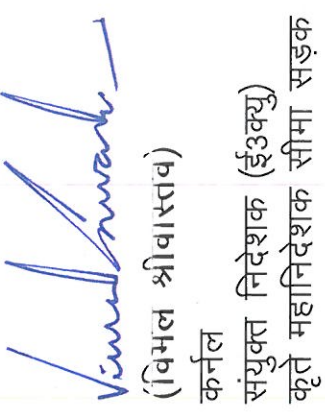 Vimal Srivastava
(विमल श्रीवास्तव)
कर्नल
संयुक्त निदेशक (ई3क्यु)
कृते महानिदेशक सीमा सड़क